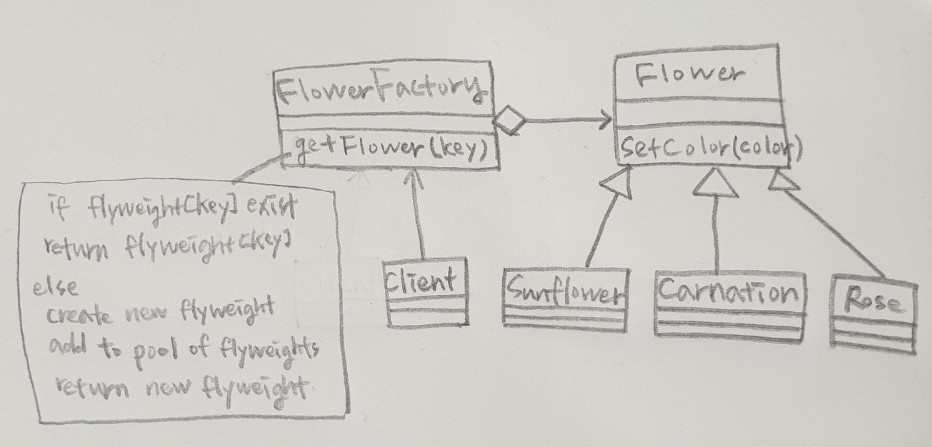 FlowerFactory
getFlower(key)
Flower
setColor(color)
if flyweight[key] exist
return flyweight[key]
else
create new flyweight
add to pool of flyweights
return new flyweight
Client
Sunflower
Carnation
Rose